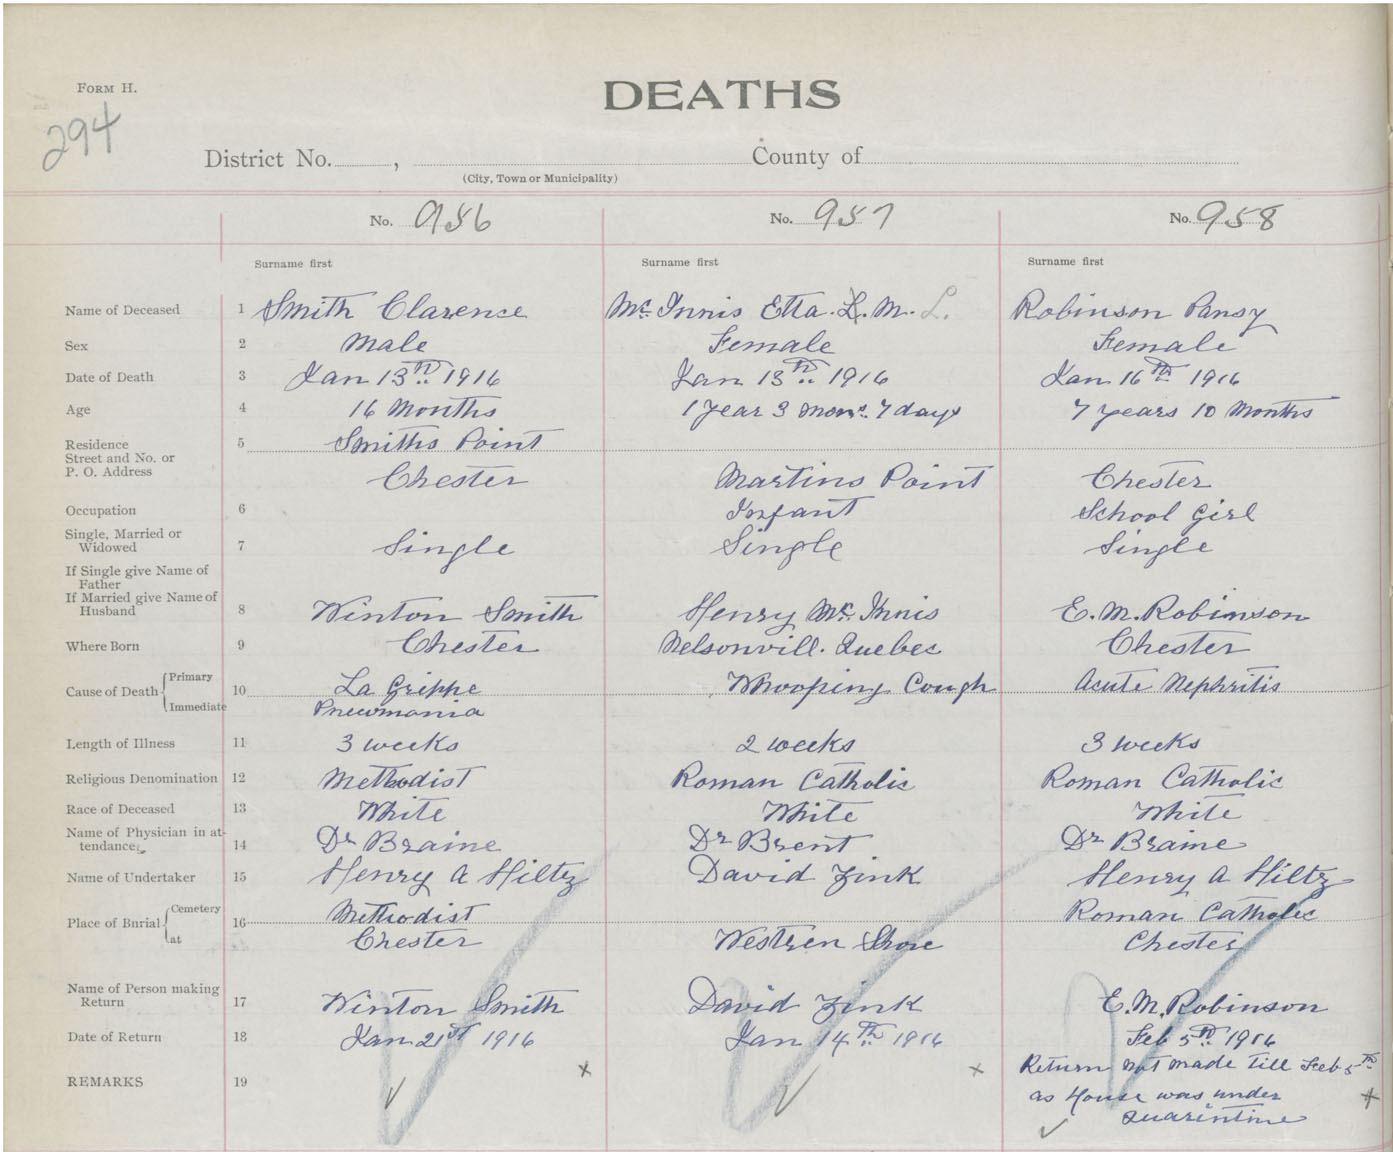 FORM H.
294
DEATHS
District No. , County of
(City, Town or Municipality)
No. 956 No. 957 No. 958
Surname first Surname first Surname first
Name of Deceased 1 Smith Clarence McInnis Etta. L. M. L. Robinson Pansy
Sex 2 Male Female Female
Date of Death 3 Jan 13th 1916 Jan 13th 1916 Jan 16th 1916
Age 4 16 Months 1 year 3 mons. 7 days 7 years 10 Months
Residence 5 Smiths Point
Street and No. or
P. O. Address Chester Martins Point Chester
Occupation 6 Infant School Girl
Single, Married or
Widowed 7 Single Single Single
If Single give Name of
Father
If Married give Name of
Husband 8 Winton Smith Henry McInnis E. M. Robinson
Where Born 9 Chester Nelsonvill. Quebec Chester
Cause of Death Primary 10 La Grippe Whooping Cough Acute Nephritis
Immediate Pneumania
Length of Illness 11 3 weeks 2 weeks 3 weeks
Religious Denomination 12 Methodist Roman Catholic Roman Catholic
Race of Deceased 13 White White White
Name of Physician in at-
tendance 14 Dr Braine Dr Brent Dr Braine
Name of Undertaker 15 Henry A Hiltz David Zink Henry A Hiltz
Place of Burial Cemetery 16 Methodist Roman Catholic
at Chester Westren Shore Chester
Name of Person making
Return 17 Winton Smith David Zink E. M. Robinson
Date of Return 18 Jan 21st 1916 Jan 14th 1916 Feb 5th 1916
REMARKS 19 Return not made till Feb 5th
as House was under
Quarintine